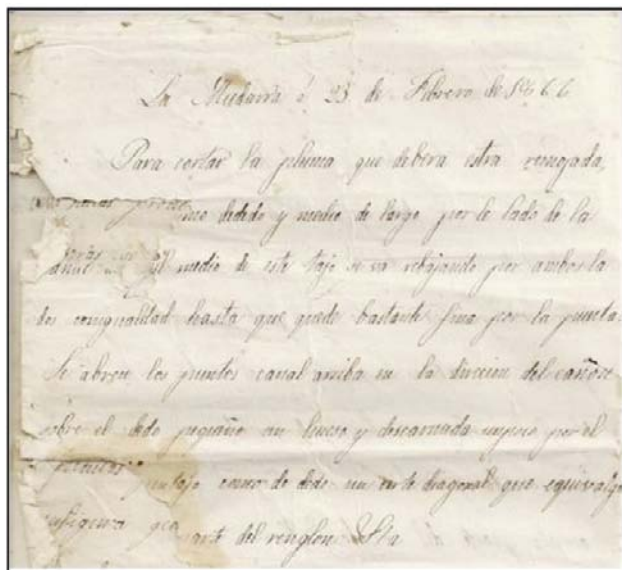 La Mudarra á 23 de Febrero de 1866
Para cortar la pluma que debera estra remojada,
mo dedido y medio de largo por le lado de la
al medio de este tajo se va rebajando por ambos la
dos conigualdad hasta que quede bastante fina por la punta
Se abren los puntos canal arriba en la direccion del cañon
sobre el dedo pequeño un lienso y descarnada unpoco por el
tajo como de dedo un corte diagonal que equivalga
parte del renglon